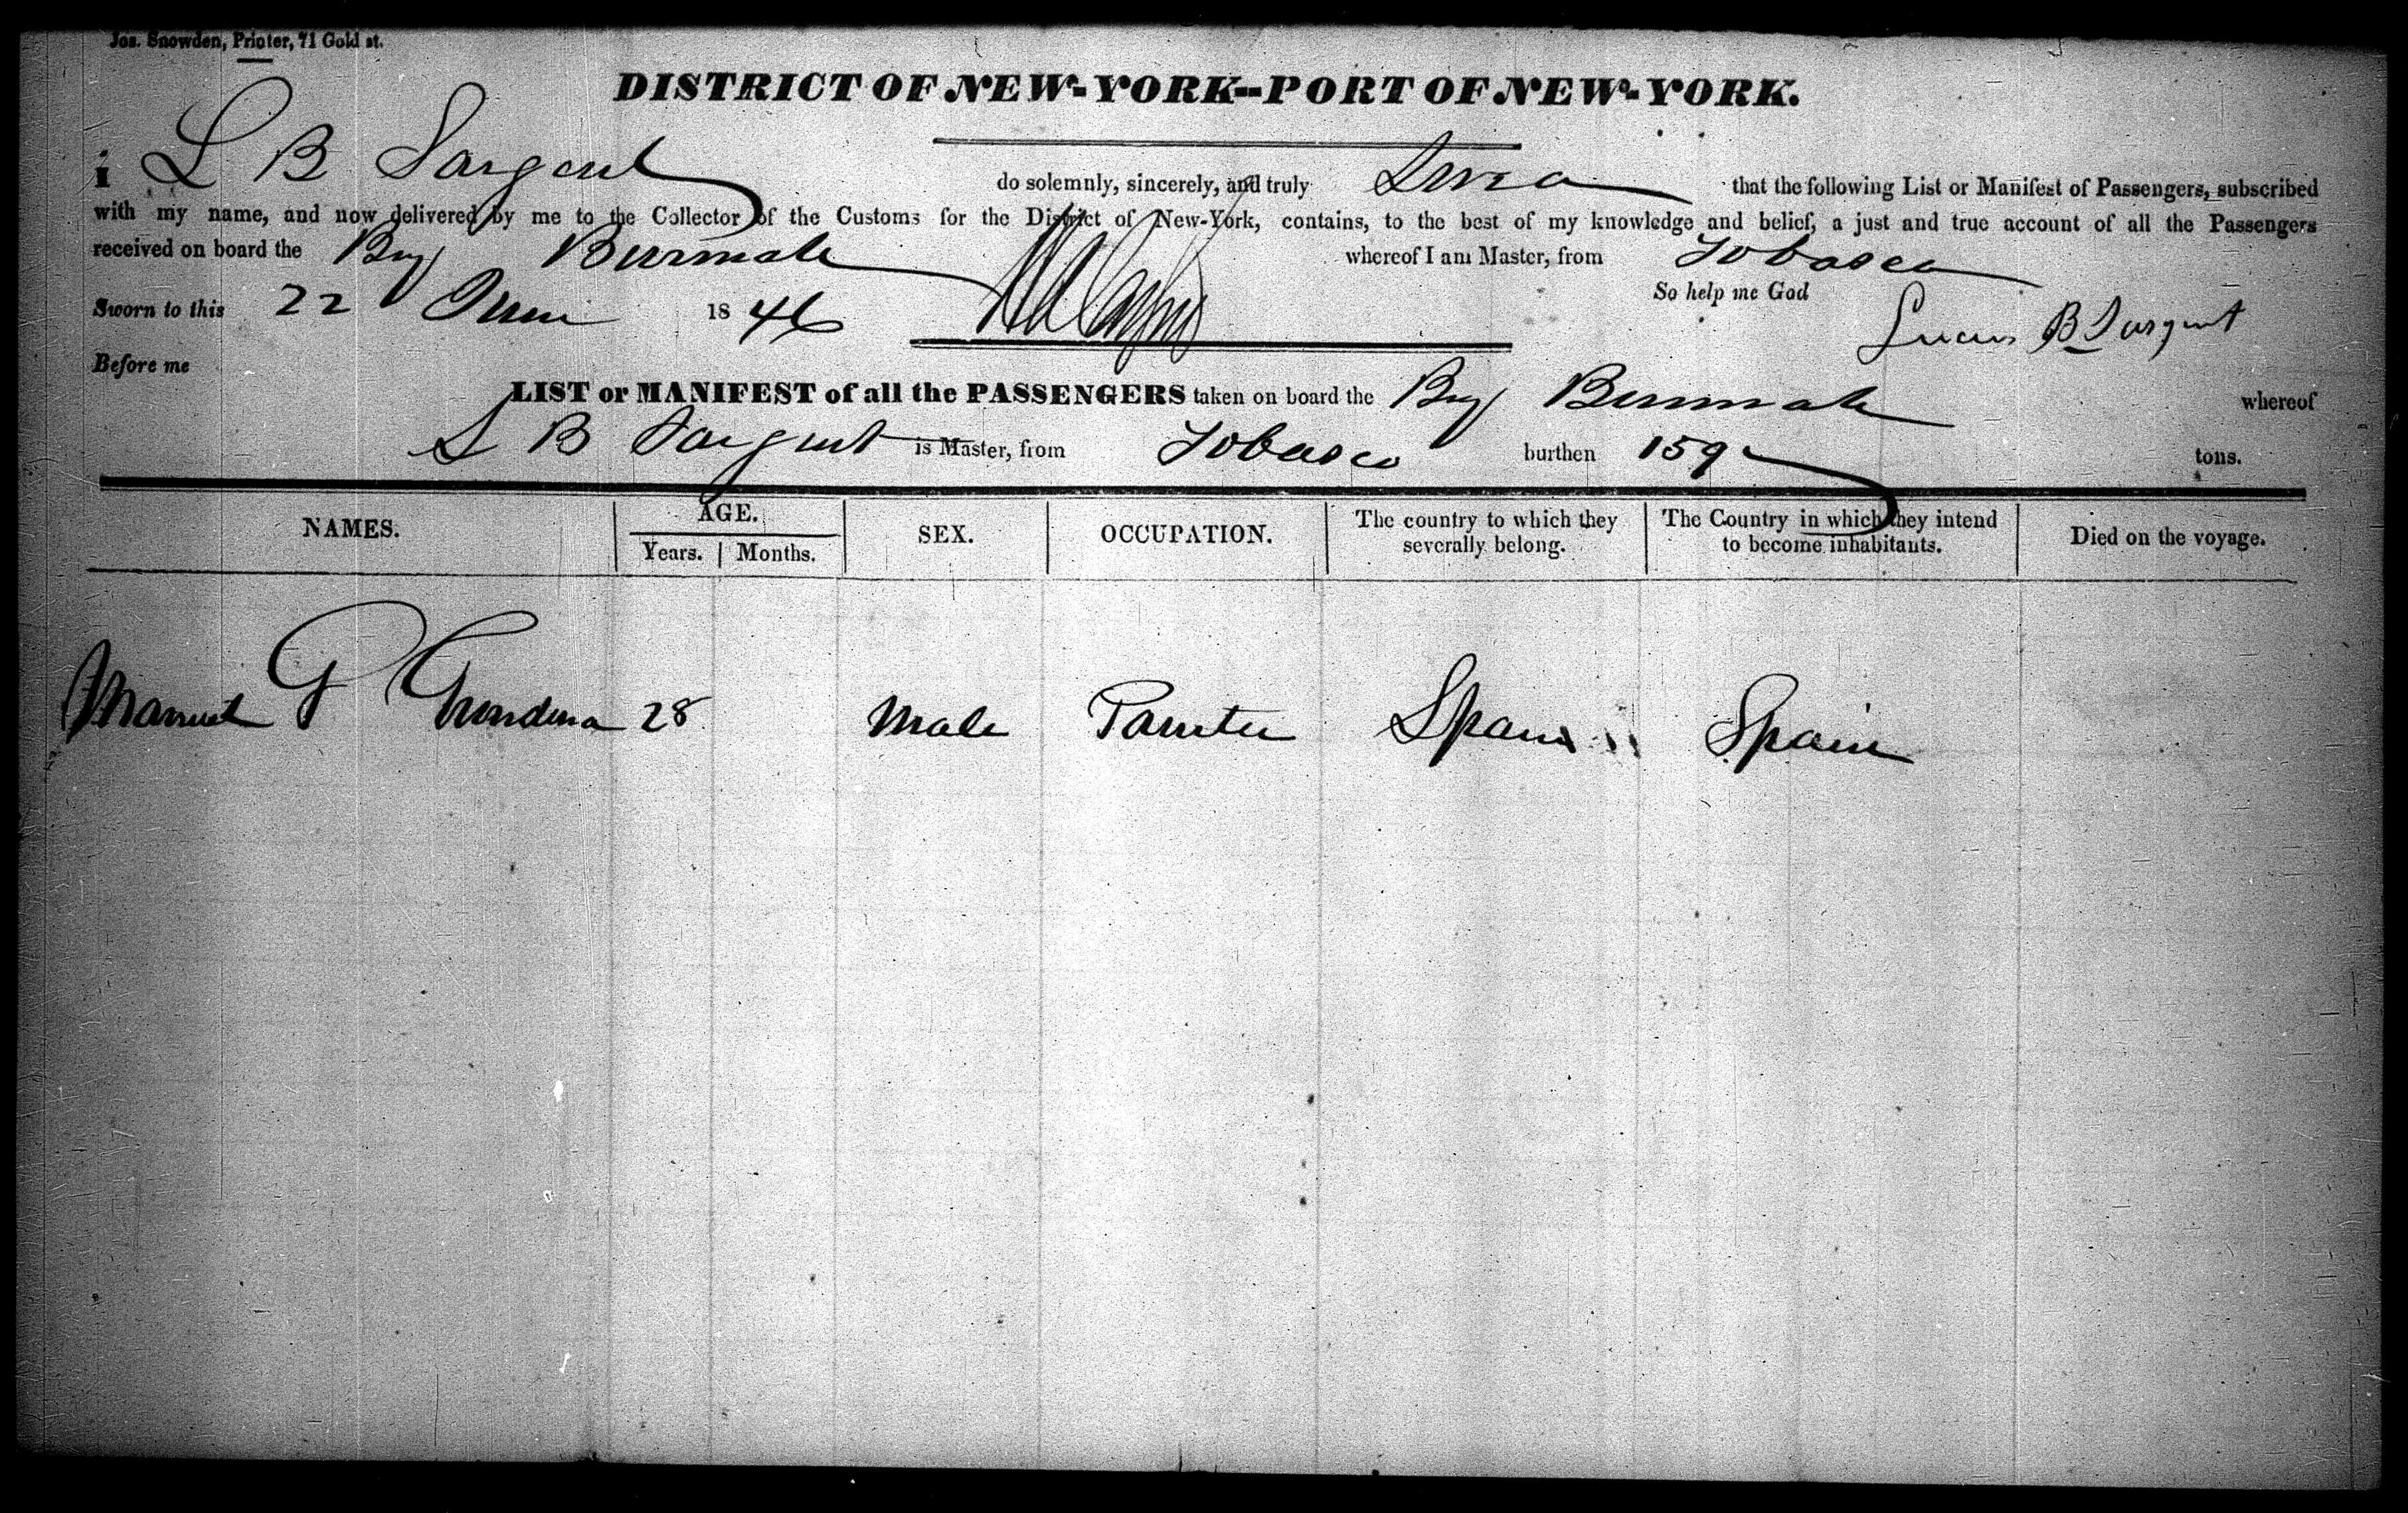 Jos. Snowden, Printer, 71 Gold st.
DISTRICT OF NEW-YORK--PORT OF NEW-YORK.
I L B Sargent do solemnly, sincerely, and truly Swear that the following List or Manifest of Passengers, subscribed
with my name, and now delivered by me to the Collector of the Customs for the District of New-York, contains, to the best of my knowledge and belief, a just and true account of all the Passengers
received on board the Brig whereof I am Master, from Tobasco
So help me God
Sworn to this 22 June 1846
B Sargent
Before me
LIST or MANIFEST of all the PASSENGERS taken on board the Brig whereof
L B Sargent is Master, from Tobasco burthen 159 tons.
NAMES. AGE. Years. Months. SEX. OCCUPATION. The country to which they severally belong. The Country in which they intend to become inhabitants. Died on the voyage.
Manuel G 28 Male Painter Spain Spain